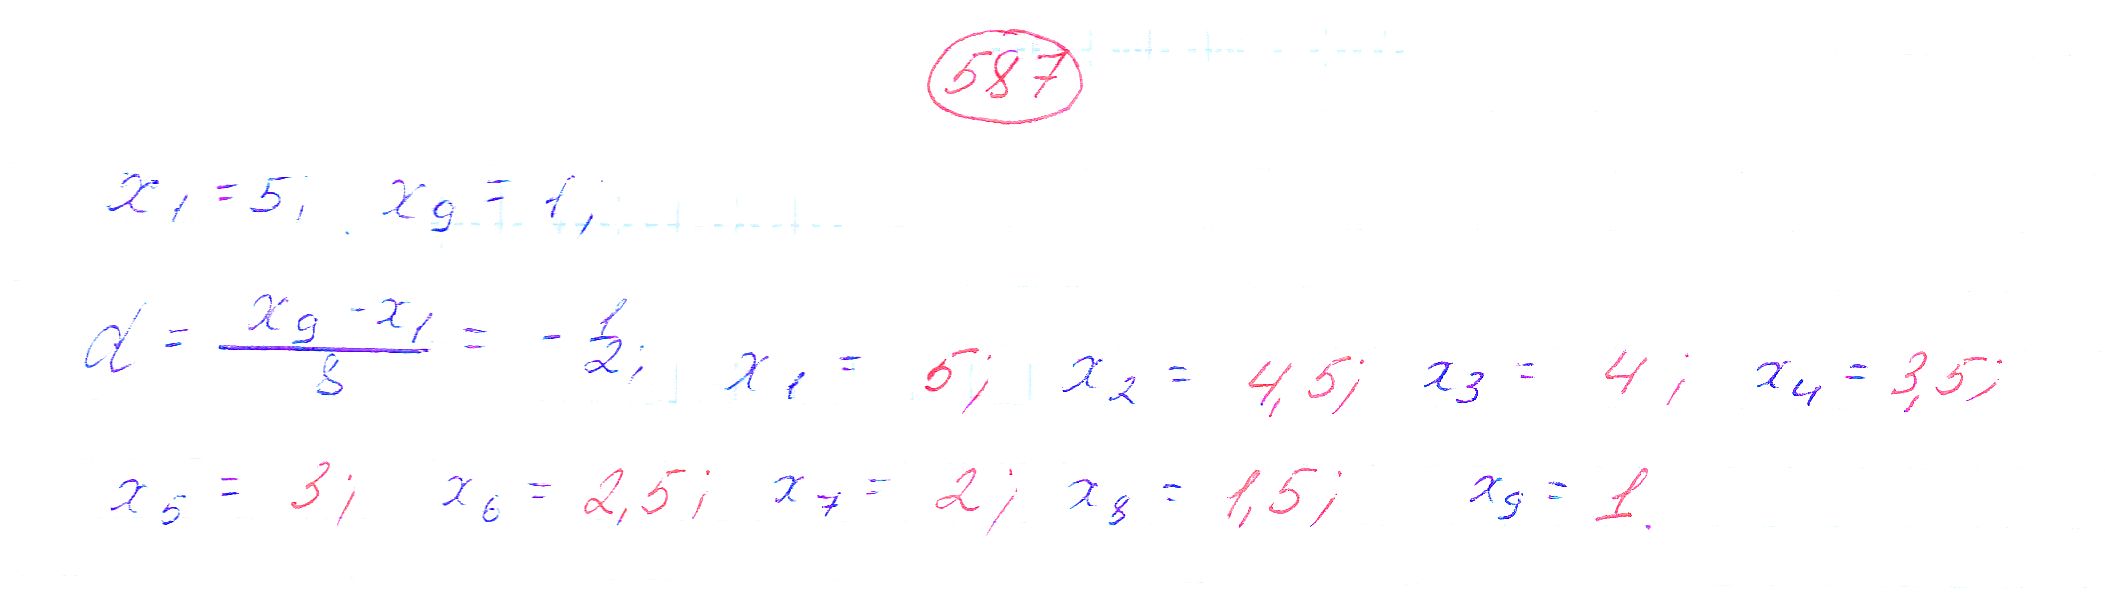 587
x₁ = 5; x₉ = 1;
d = (x₉ - x₁)/8 = - 1/2; x₁ = 5; x₂ = 4,5; x₃ = 4; x₄ = 3,5;
x₅ = 3; x₆ = 2,5; x₇ = 2; x₈ = 1,5; x₉ = 1.